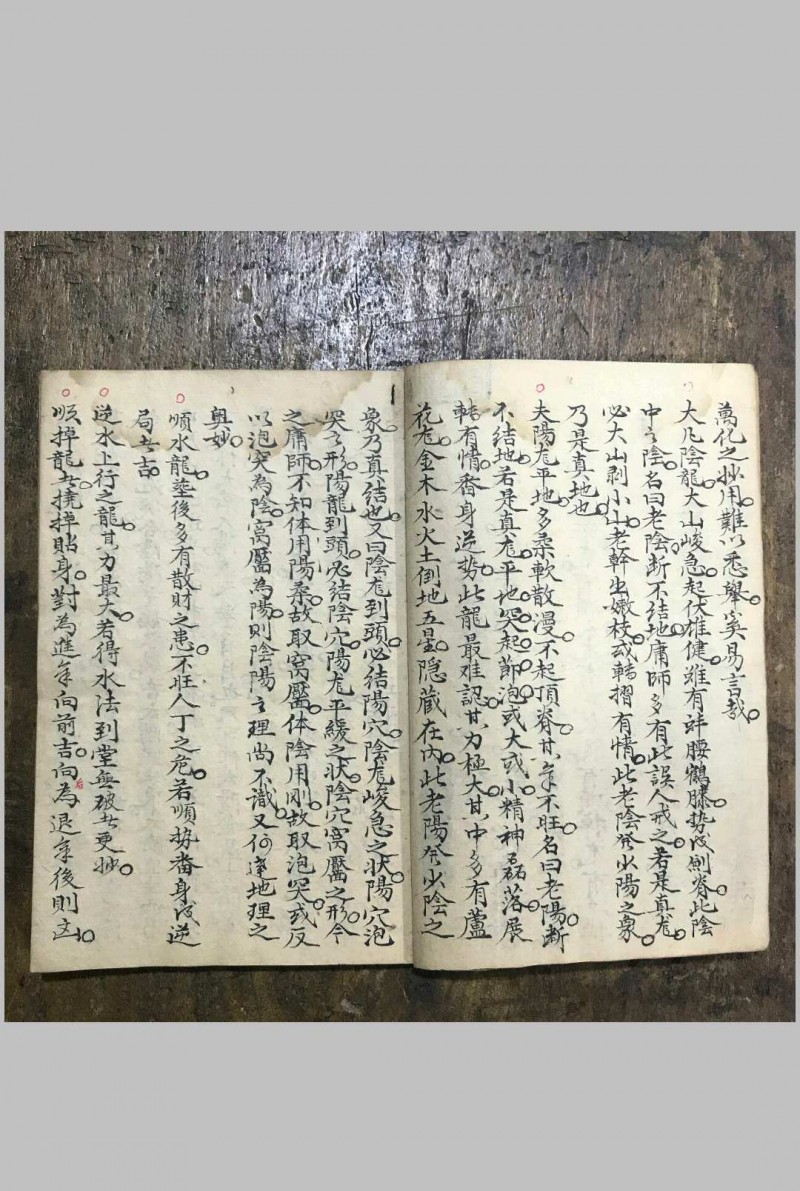 萬化之妙用難以悉舉奚易言哉
大凡陰龍大山峻急起伏雄健雖有蜂腰鶴膝勢成劍脊此陰
中之陰名曰老陰断不结地庸師多有此誤人戒之若是真龙
必大山剥小山老幹出嫩枝或転摺有情此老陰発少陽之象
乃是真地也
夫陽龙平地多柔軟散漫不起頂脊其氣不旺名曰老陽断
不结地若是真龙平地突起節泡或大或小精神磊落展
転有情番身逆势此龍最难認其力極大其中多有蘆
花龙金木水火土倒地五星隐藏在内此老陽発少陰之
象乃真结也又曰陰龙到頭必结陽穴陰龙峻急之状陽穴泡
突之形陽龍到頭必结陰穴陽龙平緩之状陰穴窩靨之形今
之庸師不知体用陽柔故取窩靨体陰用刚故取泡突或反
以泡突為陰窩靨為陽則陰陽之理尚不識又何達地理之
奥妙
順水龍塟後多有散財之患不旺人丁之危若順势番身成逆
局者吉
逆水上行之龍其力最大若得水法到堂無破者更妙
順掉龍者撓掉貼身對為進氣向前吉向后為退氣後則凶